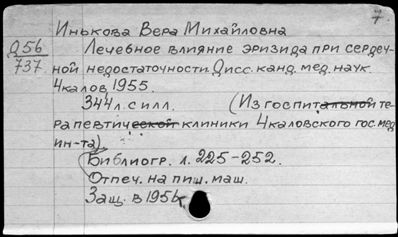 7.
Инькова Вера Михайловна
Q56
737
Лечебное влияние эризида при сердеч-
ной недостаточности. Дисс. канд. мед. наук.
Чкалов 1955.
344 л. с илл. (Из госпитальной те
рапевтической клиники Чкаловского гос. мед
ин-та).
Библиогр. л. 225-252.
Отпеч. на пиш. маш.
Защ. в 195